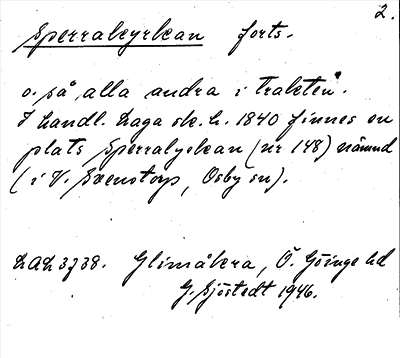 2.
Sperrakyrkan forts.
o. så alla andra i trakten".
I handl. Laga sk. h. 1840 finnes en
plats Sperralyckan (nr 148) nämnd
(i V. Svenstorp, Osby sn).
LAL 3738. Glimåkra, Ö. Göinge hd
G. Sjöstedt 1946.